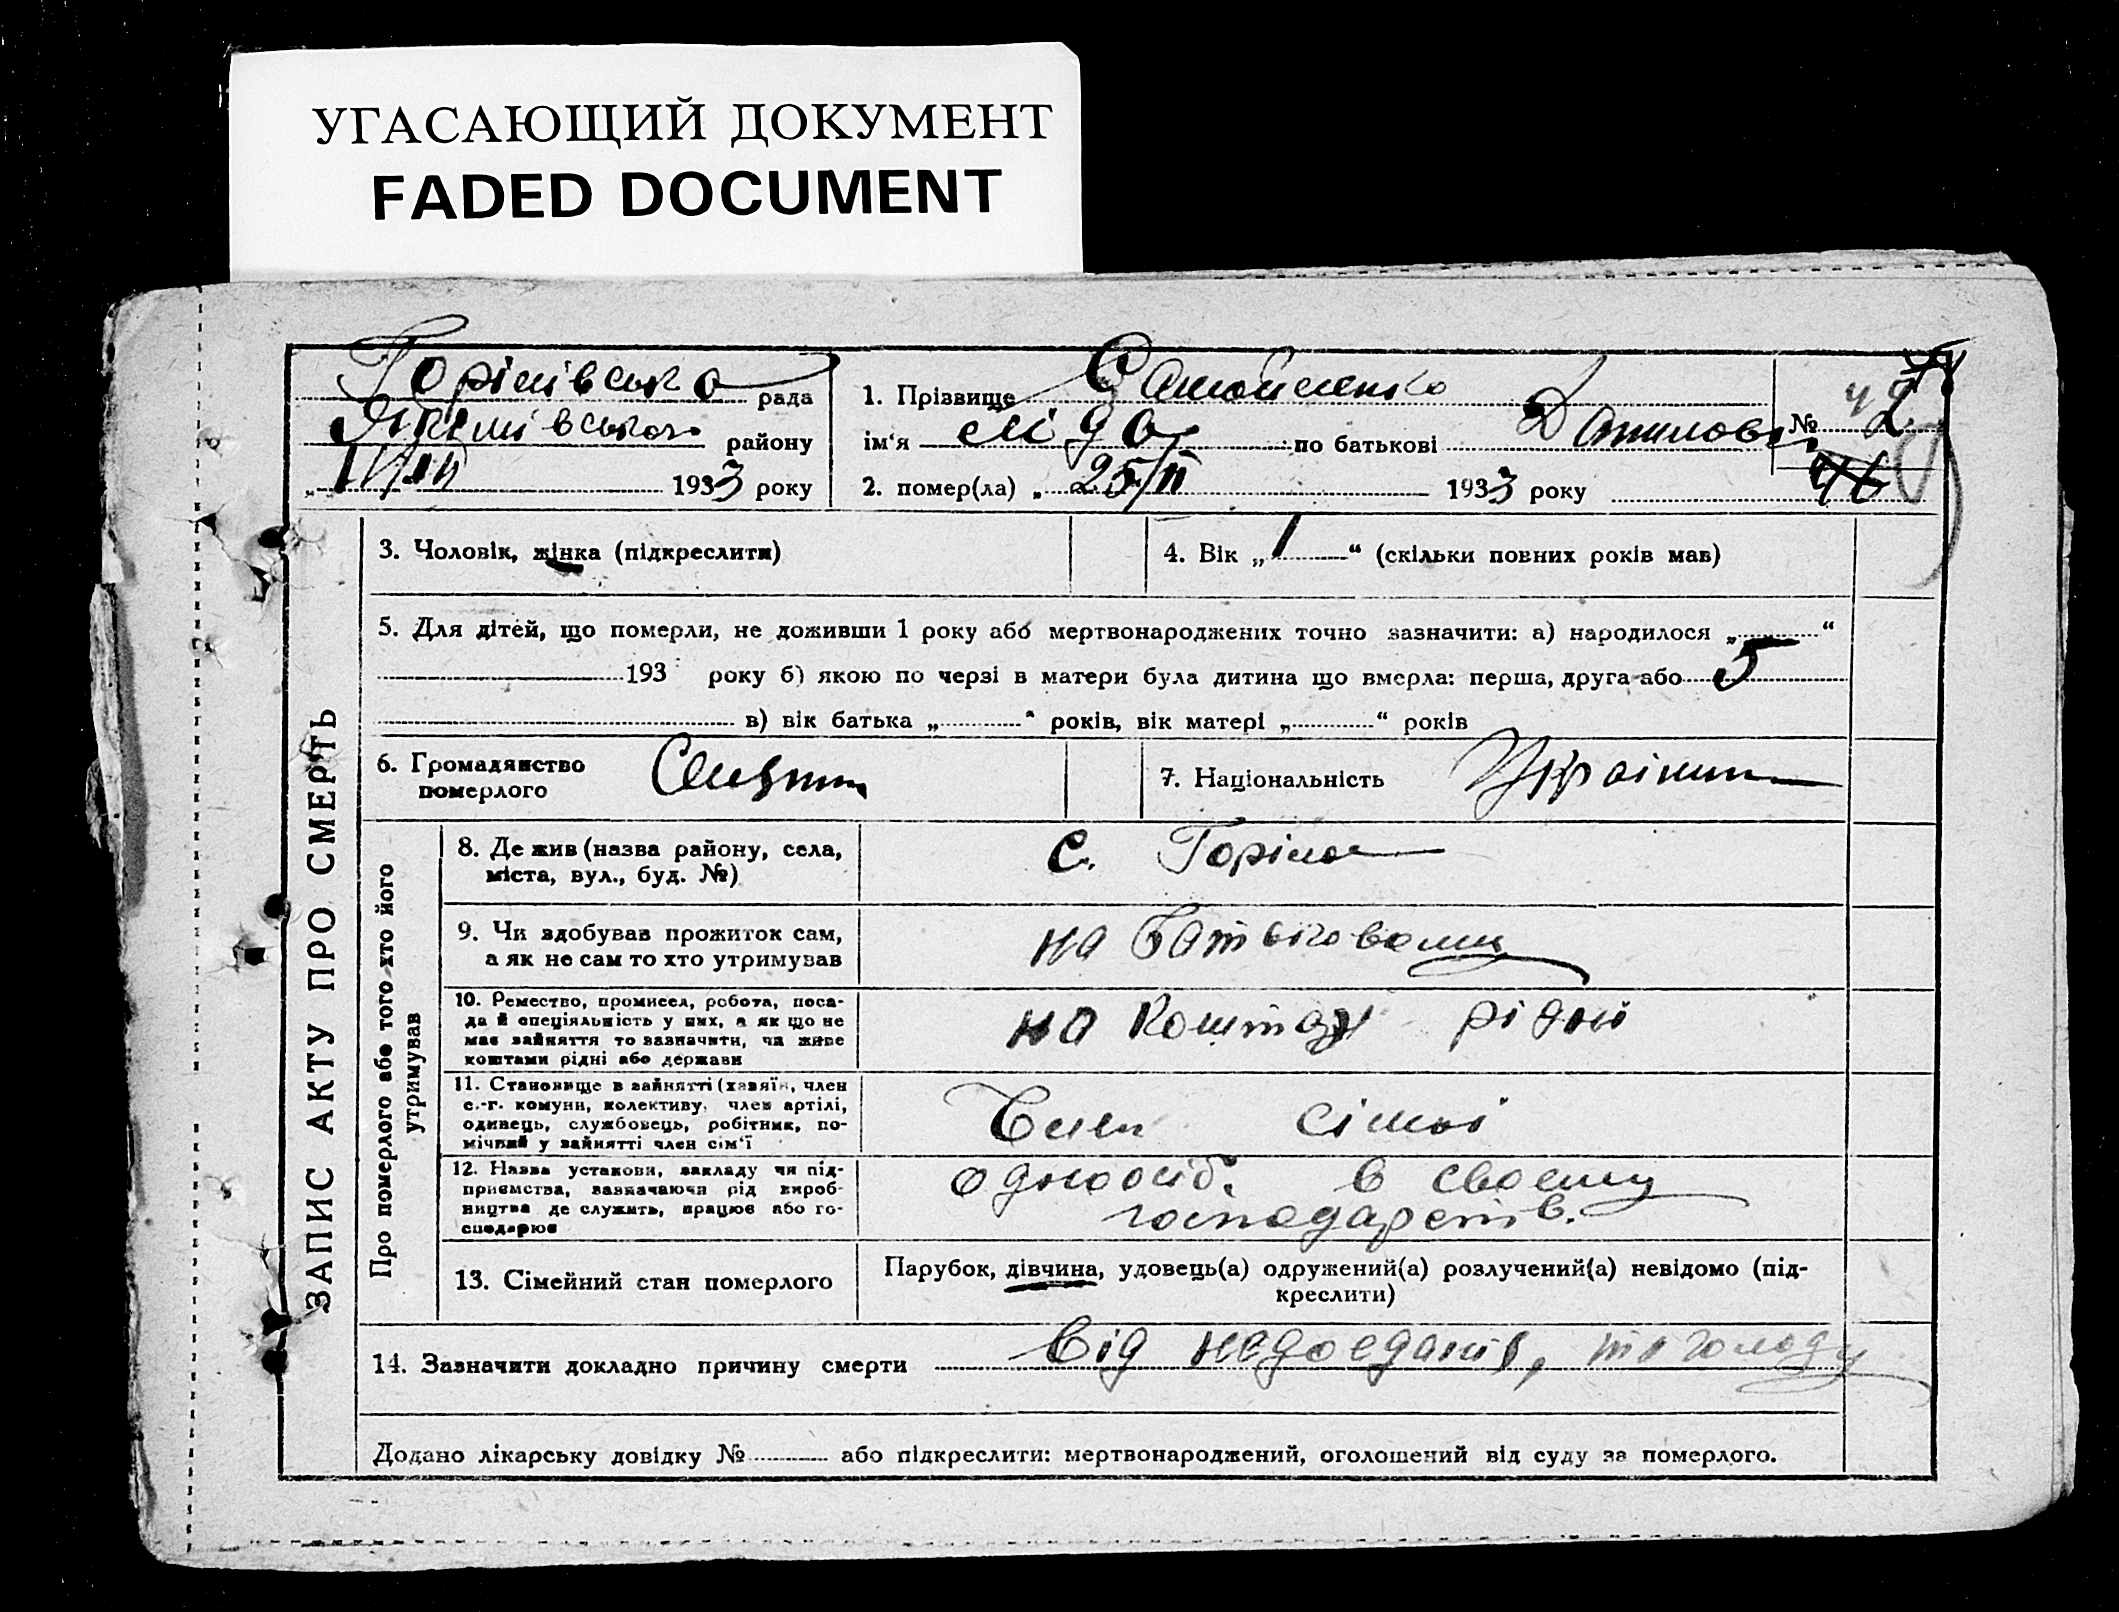 УГАСАЮЩИЙ ДОКУМЕНТ
FADED DOCUMENT
Горімівська рада
району
1933 року
1. Прізвище Самойленко
ім‘я Ліда по батькові Данилов
№ 2
2. помер(ла) „ 25/II 1933 року
3. Чоловік, жінка (підкреслити)
4. Вік „ 1 “ (скільки повних років мав)
5. Для дітей, що померли, не доживши 1 року або мертвонароджених точно зазначити: а) народилося „ “
193 року б) якою по черзі в матери була дитина що вмерла: перша, друга або 5
в) вік батька „ “ років, вік матері „ “ років
6. Громадянство
померлого
7. Національність Українка
ЗАПИС АКТУ ПРО СМЕРТЬ
Про померлого або того хто його
утримував
8. Де жив (назва району, села,
міста, вул., буд. №)
с. Горіма
9. Чи здобував прожиток сам,
а як не сам то хто утримував
на батьковому
10. Ремество, промисел, робота, поса-
да й спеціяльність у них, а як що не
має зайняття то зазначити, чи живе
коштами рідні або держави
на коштах рідні
11. Становище в зайнятті (хазяїн, член
с.-г. комуни, колективу, член артілі,
одинець, службовець, робітник, по-
мічний у зайнятті член сім‘ї
Член сімї
12. Назва установи, закладу чи під-
приємства, зазначаючи рід вироб-
ництва де служить, працює або го-
сподарює
одноосіб. в своєму
господарств.
13. Сімейний стан померлого
Парубок, дівчина, удовець(а) одружений(а) розлучений(а) невідомо (під-
креслити)
14. Зазначити докладно причину смерти від недоедання, та голоду
Додано лікарську довідку № або підкреслити: мертвонароджений, оголошений від суду за померлого.